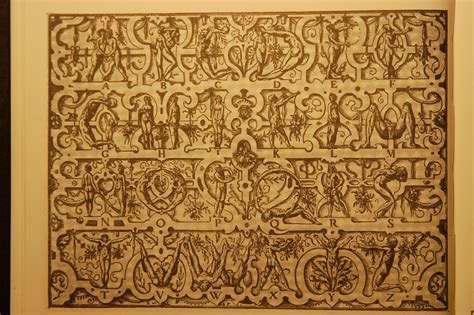 A B C D E F
G H K L M
N O P Q R S
T V W X Y Z